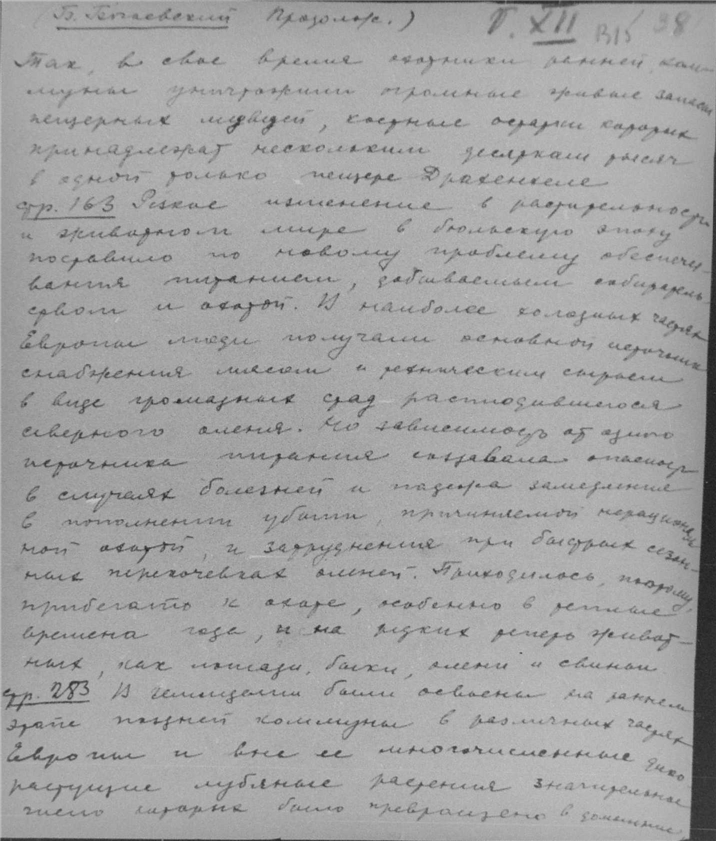 (Б. Богаевский Продолж.) Т. XII В15 38
Так, в свое время охотники ранней ком-
муны уничтожили огромные живые запасы
пещерных медведей, костные остатки которых
принадлежат нескольким десяткам тысяч
в одной только пещере Драхенхеле
стр. 163 Резкое изменение в растительности
и животном мире в бюльскую эпоху
поставило по новому проблему обеспече-
вания питанием, добываемым собиратель-
ством и охотой. В наиболее холодных частях
Европы люди получали основной источник
снабжения мясом и техническим сырьем
в виде громадных стад расплодившегося
северного оленя. Но зависимость от одного
источника питания создавала опасность
в случаях болезней и падежа замедления
в пополнении убыли, причиняемой нерациональ
ной охотой, и затруднения при быстрых сезон-
ных перекочевках оленей. Приходилось, поэтому,
прибегать к охоте, особенно в теплые
времена года, и на редких теперь живот-
ных, как лошади, быки, олени и свиньи
стр. 283 В земледелии были освоены на раннем
этапе поздней коммуны в различных частях
Европы и вне ее многочисленные дико-
растущие лубяные растения значительное
число которых было превращено в домашние